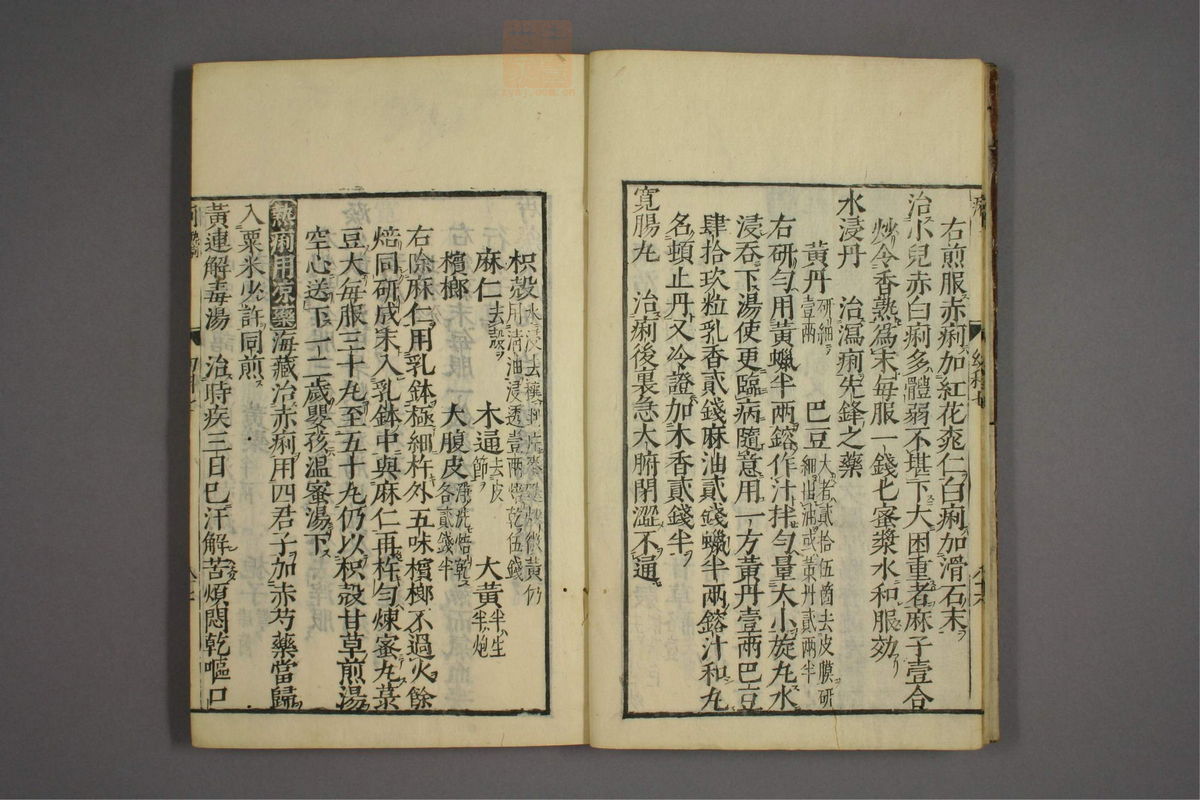 右煎服赤痢加紅花桃仁白痢加滑石末
治小兒赤白痢多體弱不堪下大困重者麻子壹合
炒令香熟為末每服一錢匕蜜漿水和服効
水浸丹 治瀉痢先鋒之藥
黃丹研細壹兩 巴豆大者貳拾伍箇去皮膜研細出油或東丹貳兩半
右研勻用黃蠟半兩鎔作汁拌勻量大小旋丸水
浸吞下湯使更臨病隨意用一方黃丹壹兩巴豆
肆拾玖粒乳香貳錢麻油貳錢蠟半兩鎔汁和丸
名頓止丹又冷證加木香貳錢半
寬腸丸 治痢後裏急大腑閉澀不通
枳殼水浸去穰用清油浸透壹兩焙乾伍錢炒微黃仍
麻仁去殼 木通去皮節 大黃半生半炮
檳榔 大腹皮淨洗焙乾各貳錢半
右除麻仁用乳鉢極細杵外五味檳榔不過火餘
焙同研成末入乳鉢中與麻仁再杵勻煉蜜丸菉
豆大每服三十丸至五十丸仍以枳殼甘草煎湯
空心送下一二歲嬰孩溫蜜湯下
熱痢用涼藥海藏治赤痢用四君子加赤芍藥當歸
入粟米少許同煎
黃連解毒湯 治時疾三日已汗解苦煩悶乾嘔口